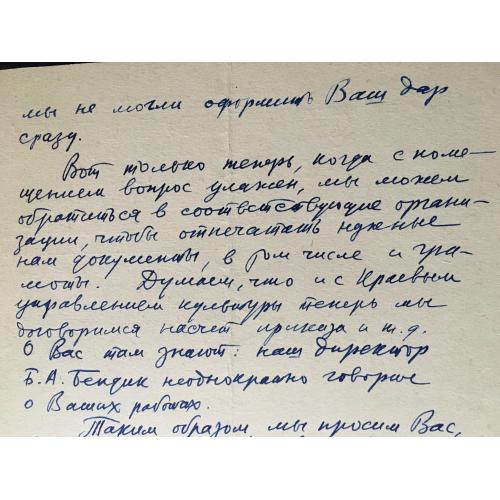 мы не могли оформить Ваш дар
сразу.
Вот только теперь, когда с поме-
щением вопрос улажен, мы можем
обратиться в соответствующие органи-
зации, чтобы отпечатать нужные
нам документы, в том числе и гра-
моты. Думаем, что и с Краевым
управлением культуры теперь мы
договоримся насчет приказа и т.д.
О Вас там знают: наш директор
Б.А. Бендик неоднократно говорил
о Ваших работах.
Таким образом, мы просим Вас,